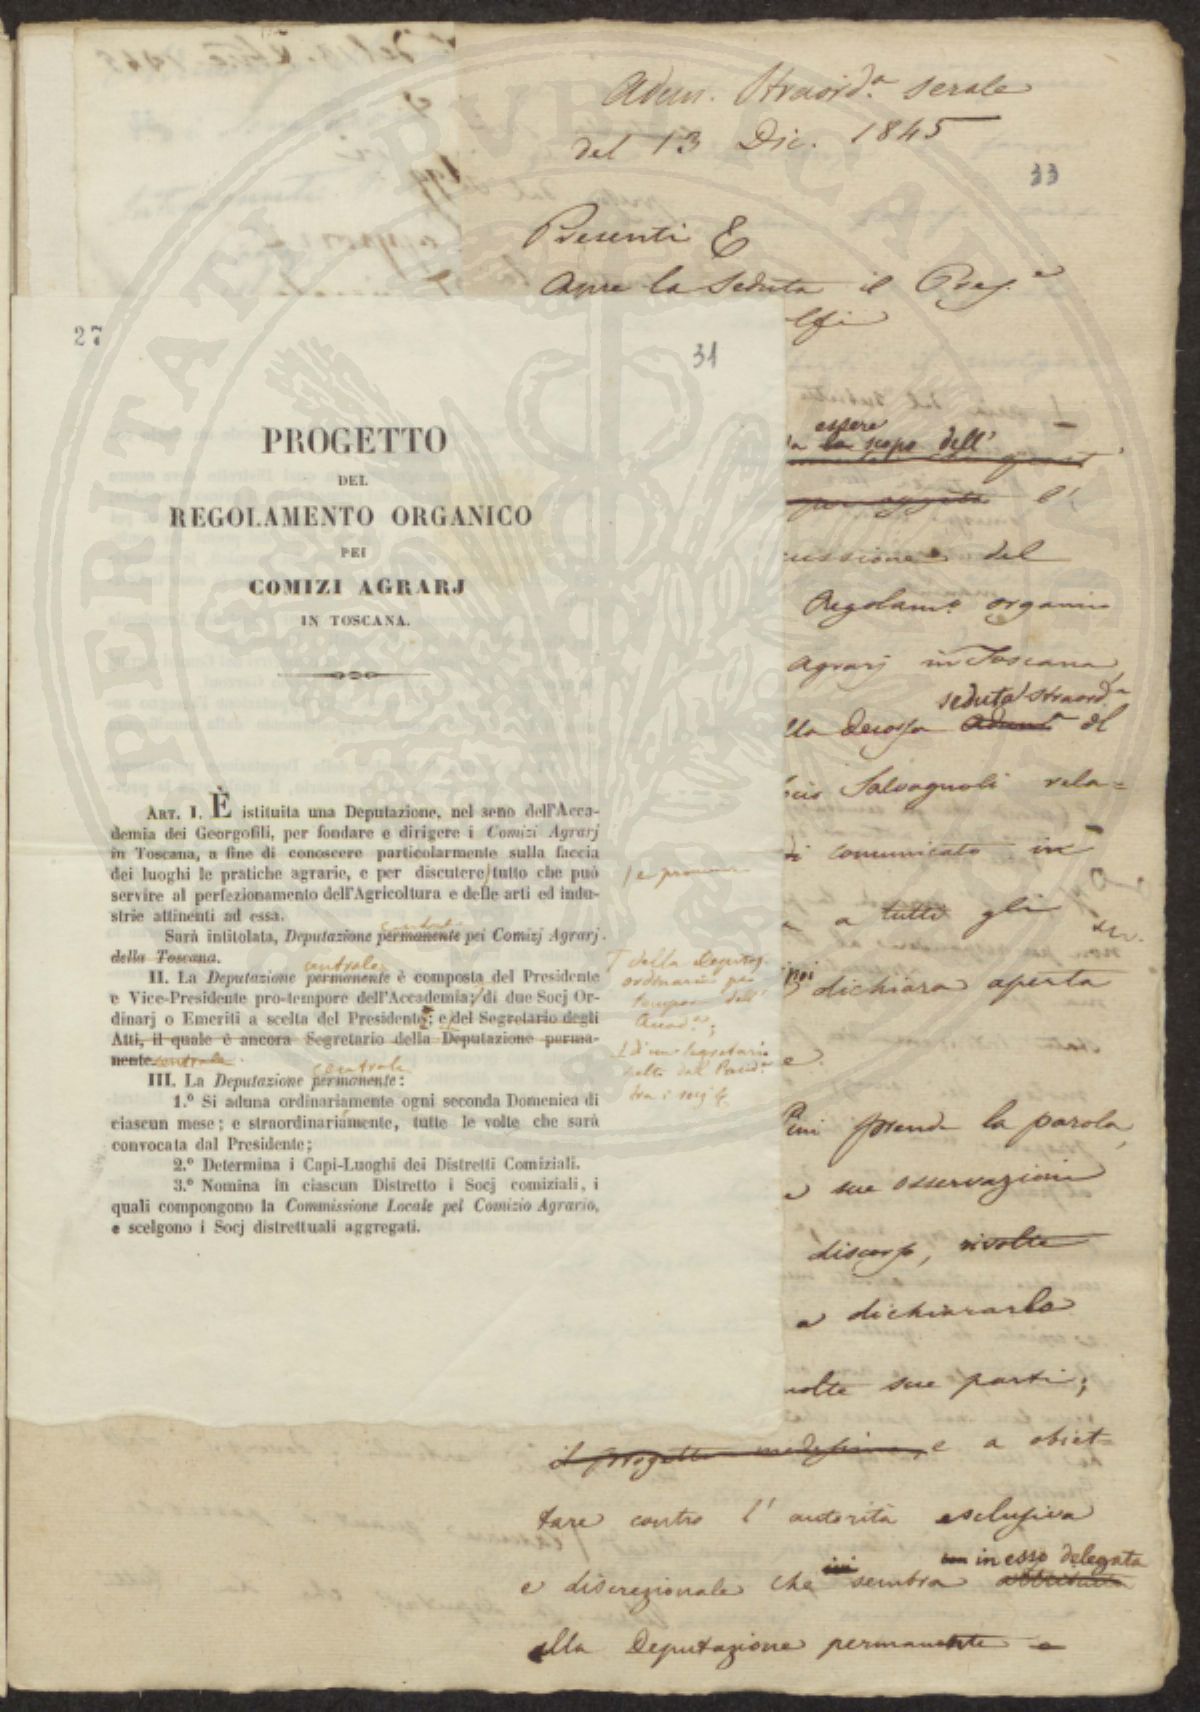 Adun. Straord.ª serale
del 13 Dic. 1845
33
Presenti &
Apre la Seduta il Pres.e
27
31
PROGETTO
DEL
REGOLAMENTO ORGANICO
PEI
COMIZI AGRARJ
IN TOSCANA.
ART. I. È istituita una Deputazione, nel seno dell'Acca-
demia dei Georgofili, per fondare e dirigere i Comizi Agrarj
in Toscana, a fine di conoscere particolarmente sulla faccia
dei luoghi le pratiche agrarie, e per discutere tutto che può
servire al perfezionamento dell'Agricoltura e delle arti ed indu-
strie attinenti ad essa.
centrale
Sarà intitolata, Deputazione permanente pei Comizj Agrarj
della Toscana.
centrale
II. La Deputazione permanente è composta del Presidente
e Vice-Presidente pro-tempore dell'Accademia; di due Socj Or-
dinarj o Emeriti a scelta del Presidente; e del Segretario degli
Atti, il quale è ancora Segretario della Deputazione perma-
nente. centrale.
centrale
III. La Deputazione permanente:
1.º Si aduna ordinariamente ogni seconda Domenica di
ciascun mese; e straordinariamente, tutte le volte che sarà
convocata dal Presidente;
2.º Determina i Capi-Luoghi dei Distretti Comiziali.
3.º Nomina in ciascun Distretto i Socj comiziali, i
quali compongono la Commissione Locale pel Comizio Agrario,
e scelgono i Socj distrettuali aggregati.
della Deputaz.
ordinaria
essere
lo scopo dell'
per oggetto l'
cussione del
Regolam.o organico
Agrarj in Toscana,
seduta straord.ª
lla decorsa Adun.ª del
Salvagnoli rela-
di comunicato in
a tutti gli
dichiara aperta
prende la parola,
e sue osservazioni
discorso, rivolte
a dichiararlo
molte sue parti;
il progetto medesimo, e a obiet-
tare contro l'autorità esclusiva
in esso delegata
e discrezionale che sembra attribuita
alla Deputazione permanente e
PERITATI PUBLICAE